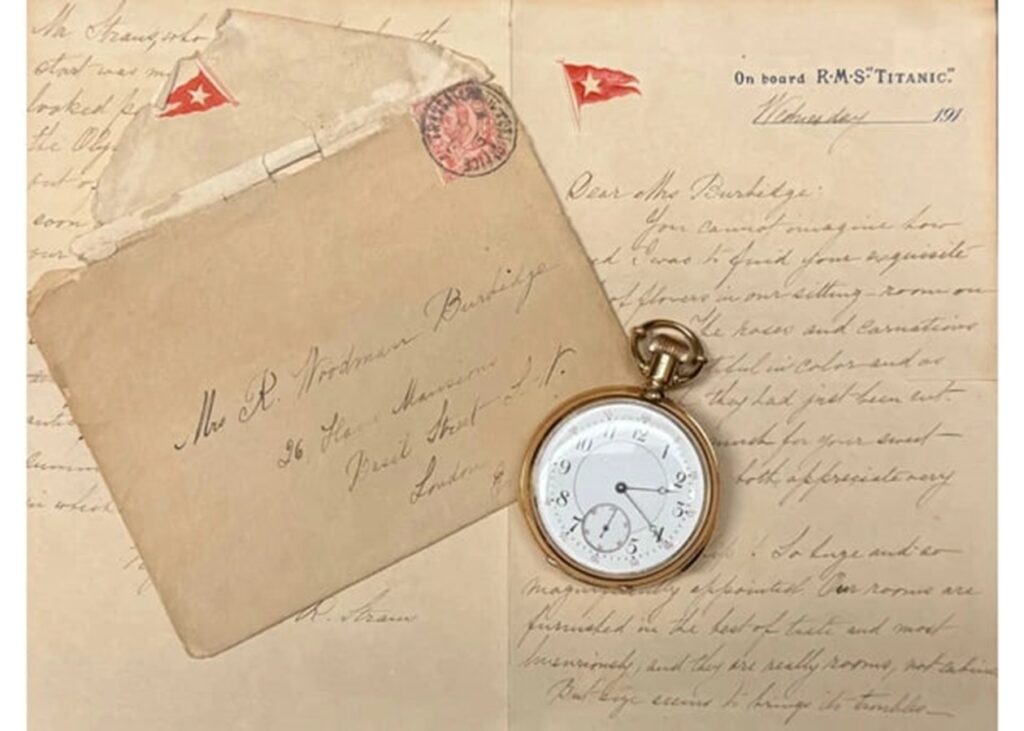 Mr Straus, who
start was
looked
the Olym
out
soon
our
Mrs R. Woodman Burbidge
26, Hans Mansions
Basil Street S.W.
London
On board R·M·S "TITANIC."
Wednesday 191
Dear Mrs Burbidge:
You cannot imagine how
I was to find your exquisite
of flowers in our sitting-room on
The roses and carnations
in color and as
they had just been cut.
much for your sweet
both appreciate very
! So huge and so
magnificently appointed. Our rooms are
furnished in the best of taste and most
luxuriously, and they are really rooms, not cabins
But size seems to bring its troubles—
in which
R. Straus
12
1
2
3
4
5
7
8
9
10
11